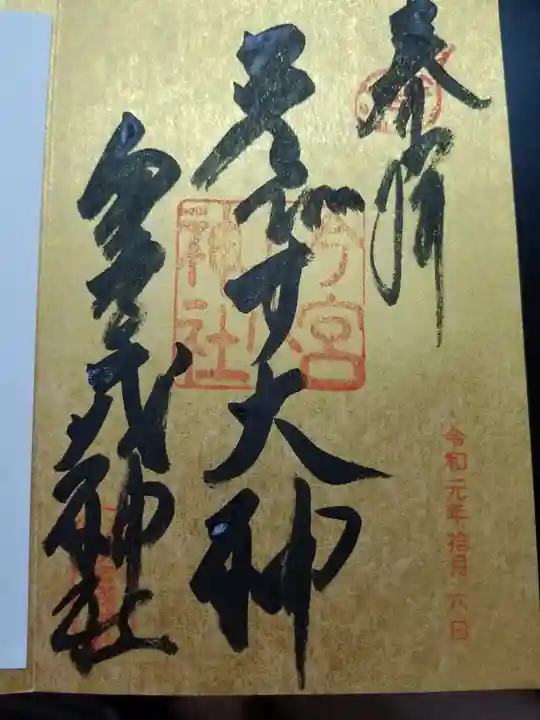 奉拝
えびす大神
戎神社
今宮
神社
令和元年拾月六日